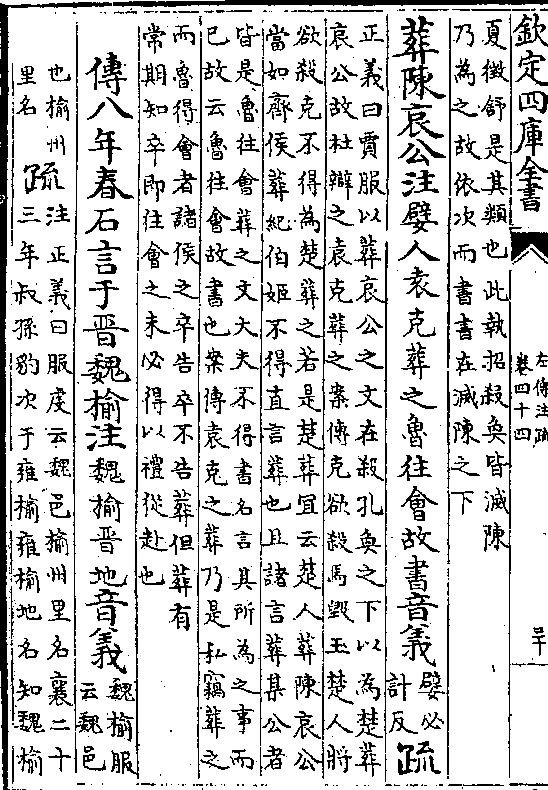 欽定四庫全書
左傳注疏
卷四十四
夏徵舒是其類也此執招殺奐皆滅陳
乃為之故依次而書書在滅陳之下
葬陳哀公注嬖人袁克葬之魯往會故書音義嬖必
計反疏
正義曰賈服以葬哀公之文在殺孔奐之下以為楚葬
哀公故杜辯之袁克葬之案傳克欲殺馬毀玉楚人將
欲殺克不得為楚葬之若是楚葬宜云楚人葬陳哀公
當如齊侯葬紀伯姬不得直言葬也且諸言葬某公者
皆是魯往會葬之文大夫不得書名言其所為之事而
已故云魯往會故書也案傳袁克之葬乃是私竊葬之
而魯得會者諸侯之卒告卒不告葬但葬有
常期知卒即往會之未必得以禮從赴也
傳八年春石言于晉魏榆注魏榆晉地音義魏榆服
云魏邑
也榆州
里名疏注正義曰服虔云魏邑榆州里名襄二十
三年叔孫豹次于雍榆雍榆地名知魏榆